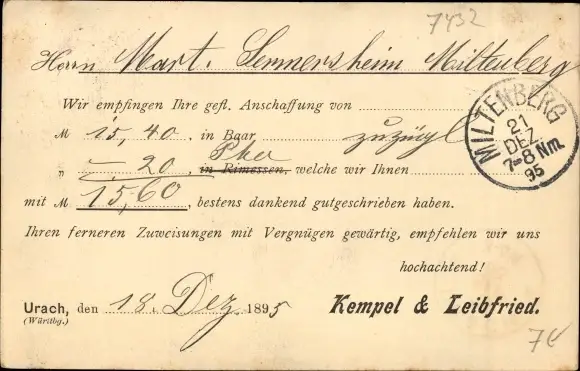 7432
Herrn Mart. Lemmersheim Miltenberg
Wir empfingen Ihre gefl. Anschaffung von
M 15,40 in Baar zuzügl
" —,20 Pka in Rimessen, welche wir Ihnen
mit M 15,60, bestens dankend gutgeschrieben haben.
Ihren ferneren Zuweisungen mit Vergnügen gewärtig, empfehlen wir uns
hochachtend!
Urach, den 18. Dez 1895 Kempel & Leibfried.
(Württbg.)
MILTENBERG
21
DEZ
7-8 Nm.
95